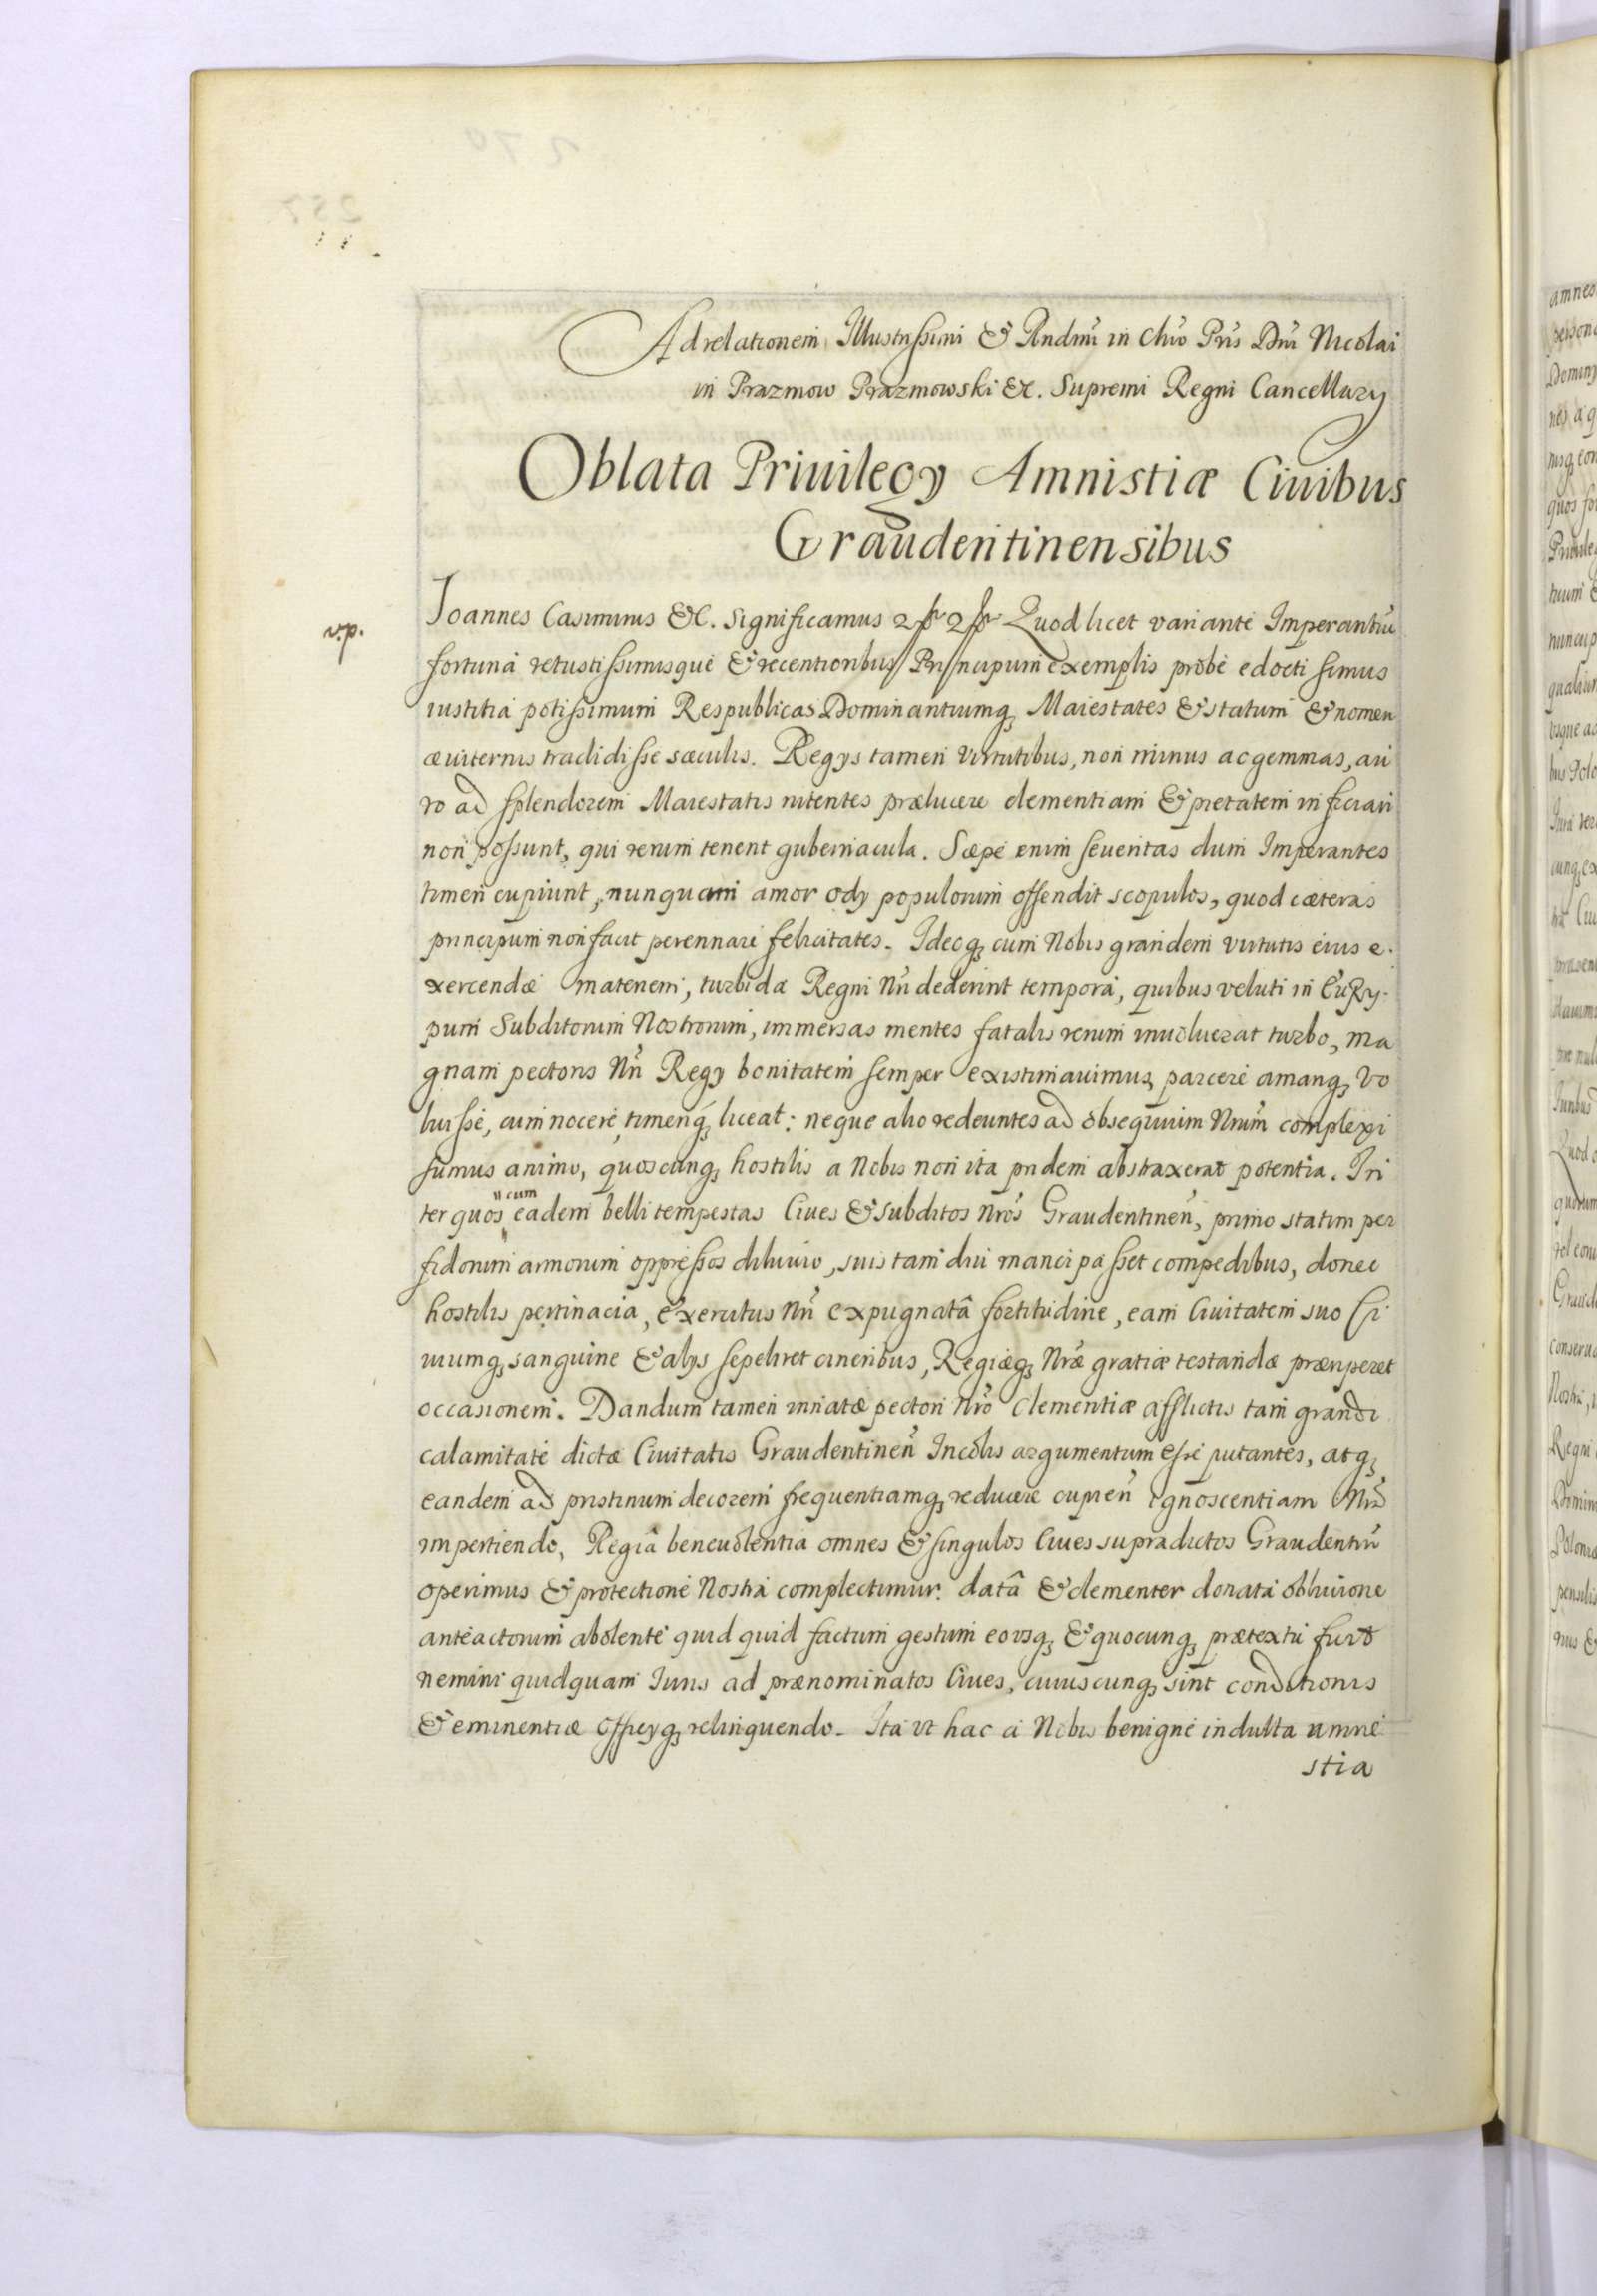 Ad relationem Illustrissimi & Rndmi in Chro Pris Dni Nicolai
in Prazmow Prazmowski &c. Supremi Regni Cancellary
Oblata Priuilegy Amnistiæ Ciuibus
Graudentinensibus
v.p.
Joannes Casimirus &c. Significamus Quod licet variante Imperantiũ
fortuna vetustissimisque & recentioribus Principum exemplis probe edocti simus
iustitia potissimum Respublicas Dominantiumq, Maiestates & statum & nomen
æuiternis tradidisse sæculis. Regys tamen virtutibus, non minus ac gemmas, au
ro ad splendorem Maiestatis nitentes prælucere clementiam & pietatem inficiari
non possunt, qui rerum tenent gubernacula. Sæpe enim seueritas dum Imperantes
timeri cupiunt, nunquam amor ody populorum offendit scopulos, quod cæteras
principum non facit perennare felicitates. Ideoq, cum Nobis grandem virtutis eius e-
xercendæ materiem, turbida Regni Nri dederint tempora, quibus veluti in Eury-
pum Subditorum Nostrorum, immersas mentes fatalis rerum inuoluerat turbo, ma
gnam pectoris Nri Regy bonitatem semper existimauimus, parcere amariq, vo
luisse, cum nocere, timeriq, liceat: neque alio redeuntes ad obsequium Nrum complexi
sumus animo, quoscunq, hostilis a Nobis non ita pridem abstraxerat potentia. In
ter quos cum eadem belli tempestas Ciues & subditos Nros Graudentinen, primo statim per
fidorum armorum oppressos diluuio, suis tam diu mancipasset compedibus, donec
hostilis pertinacia, exercitus Nri expugnatâ fortitudine, eam Ciuitatem suo Ci
uiumq, sanguine & alys sepeliret cineribus, Regiæq, Nræ gratiæ testandæ præriperet
occasionem. Dandum tamen innatæ pectori Nro Clementiæ afflictis tam grandi
calamitate dictæ Ciuitatis Graudentinen Incolis argumentum esse putantes, atq,
eandem ad pristinum decorem frequentiamq, reducere cupien ignoscentiam Nrã
impertiendo, Regiâ beneuolentia omnes & singulos Ciues supradictos Graudentin
operimus & protectione Nostra complectimur. datâ & clementer donata obliuione
anteactorum abolente quid quid factum gestum eousq, & quocunq, prætextu fuit
nemini quidquam Iuris ad prænominatos Ciues, cuiuscunq, sint conditionis
& eminentiæ officyq, relinquendo. Ita vt hac a Nobis benigne indulta amne
stia